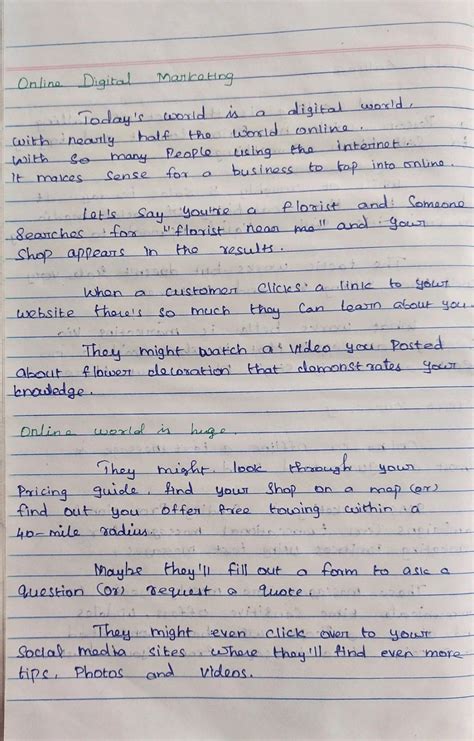 Online Digital Marketing
Today's world is a digital world,
with nearly half the world online.
with so many People using the internet.
It makes sense for a business to tap into online.
Let's say you're a florist and Someone
Searches for "florist near me" and your
Shop appears in the results.
When a customer clicks a link to your
website there's so much they can learn about you.
They might watch a video you Posted
about flower decoration that demonstrates your
knowledge.
Online world is huge
They might look through your
Pricing guide, find your Shop on a map (or)
find out you offer free towing within a
40-mile radius.
Maybe they'll fill out a form to ask a
question (or) request a quote.
They might even click over to your
Social media sites where they'll find even more
tips, Photos and videos.